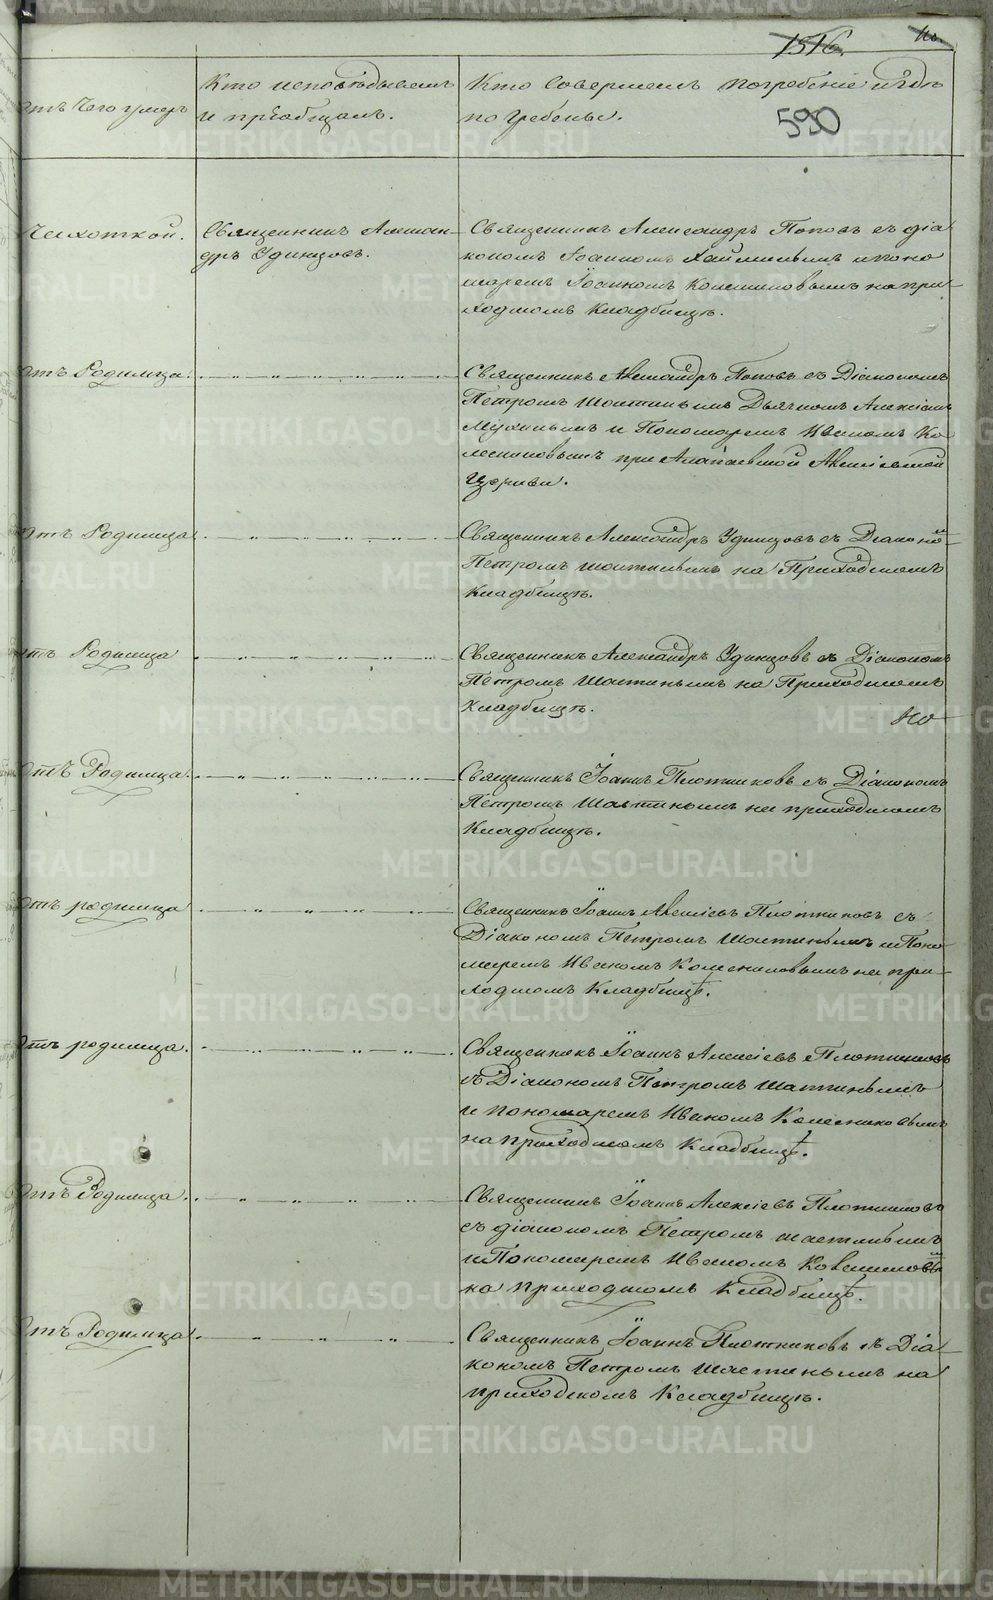 1516. 110.
590
Отъ Чего умеръ
Кто исповѣдывалъ
и пріобщалъ.
Кто Совершалъ Погребеніе и гдѣ
погребены.
Чахоткой.
Священникъ Алексан-
дръ Удинцовъ.
Священникъ Александръ Поповъ съ діа-
кономъ Іоанномъ и поно-
маремъ Іоанномъ Колесниковымъ на при-
ходскомъ Кладбищѣ.
Отъ Родимца.
Священникъ Александръ Поповъ съ Діакономъ
Петромъ Дьячкомъ Алексіемъ
и Пономаремъ Иваномъ Ко-
лесниковымъ при Алапаевской Алексіевской
Церкви.
Отъ Родимца
Священникъ Александръ Удинцовъ съ Діаконо-
Петромъ на Приходскомъ
Кладбищѣ.
Отъ Родимца
Священникъ Александръ Удинцовъ съ Діакономъ
Петромъ на Приходскомъ
Кладбищѣ.
Отъ Родимца.
Священникъ Іоаннъ Плотниковъ съ Діакономъ
Петромъ на приходскомъ
Кладбищѣ.
Отъ родимца
Священникъ Іоаннъ Алексіевъ Плотниковъ съ
Діакономъ Петромъ и Поно-
маремъ Иваномъ Колесниковымъ на при-
ходскомъ Кладбищѣ.
Отъ родимца.
Священникъ Іоаннъ Алексіевъ Плотниковъ
съ Діакономъ Петромъ
и пономаремъ Иваномъ Колесниковымъ
на приходскомъ Кладбищѣ.
Отъ Родимца.
Священникъ Іоаннъ Алексіевъ Плотниковъ
съ діакономъ Петромъ
и Пономаремъ Иваномъ
на приходскомъ Кладбищѣ.
Отъ Родимца
Священникъ Іоаннъ Плотниковъ съ Діа-
кономъ Петромъ на
приходскомъ Кладбищѣ.
METRIKI.GASO-URAL.RU